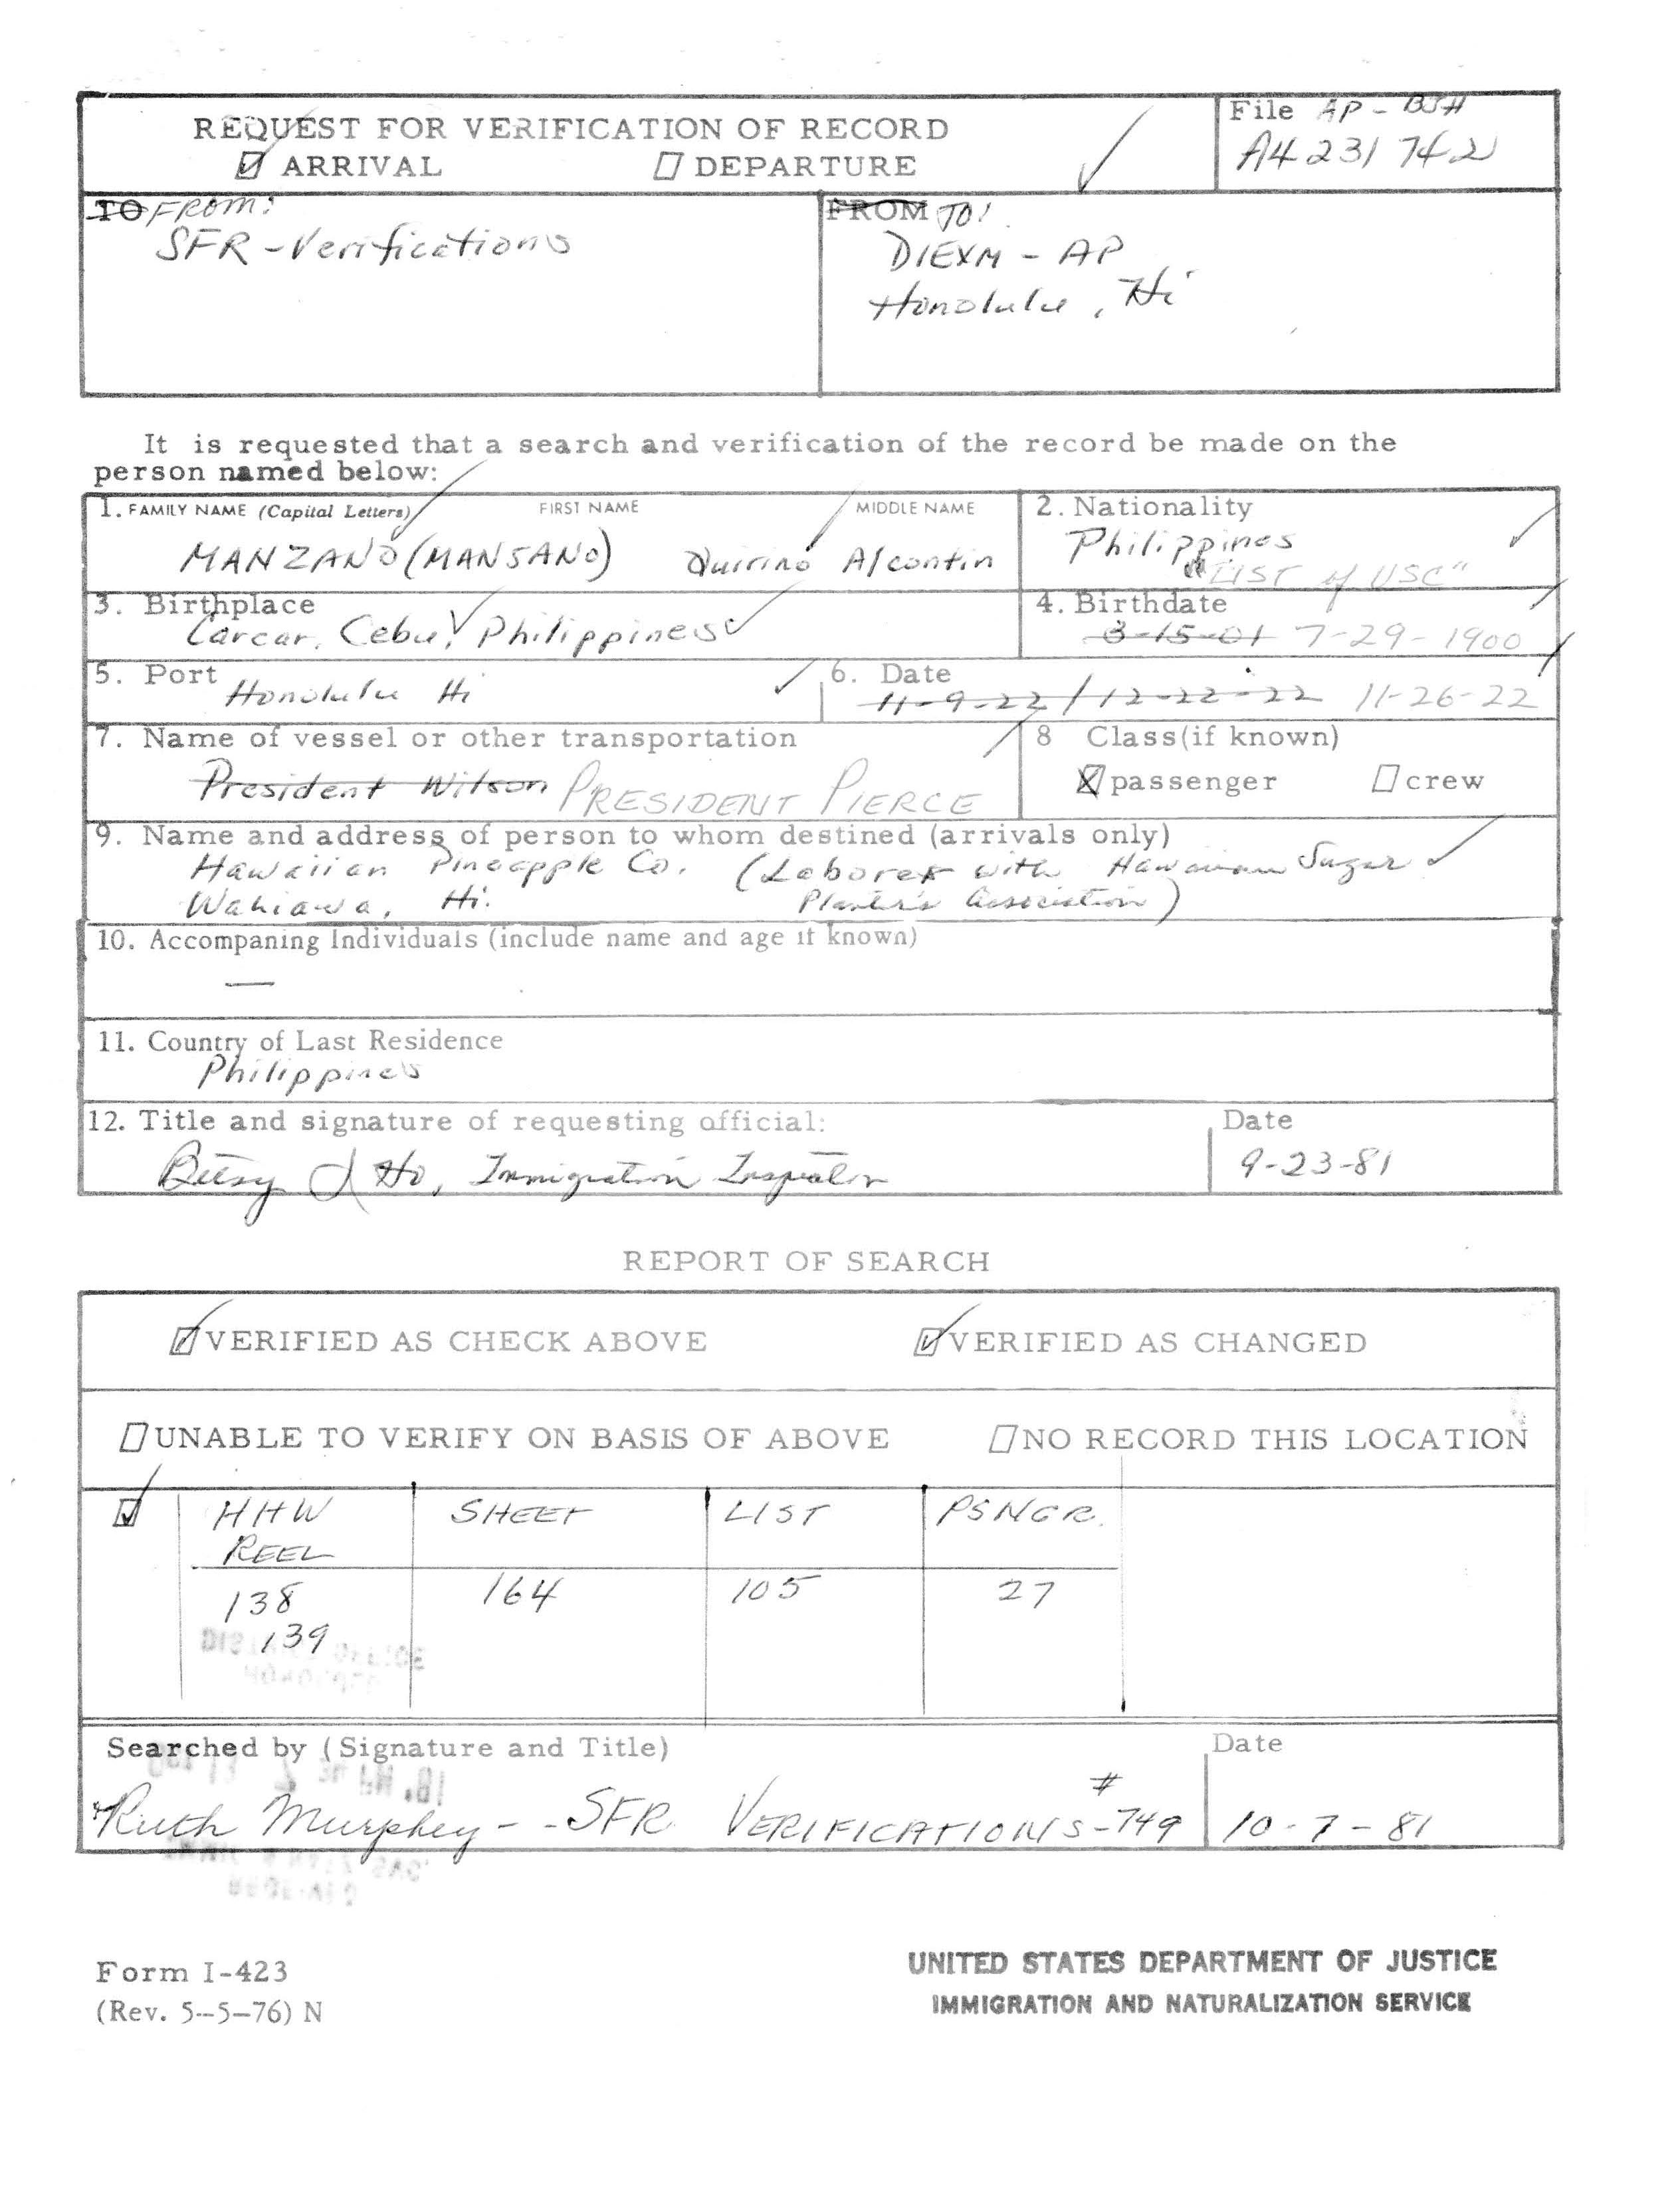 REQUEST FOR VERIFICATION OF RECORD
☑ ARRIVAL ☐ DEPARTURE
File AP - BJH
A4 231 742
TO FROM:
SFR - Verifications
FROM TO:
DIEXM - AP
Honolulu, Hi
It is requested that a search and verification of the record be made on the
person named below:
1. FAMILY NAME (Capital Letters) FIRST NAME MIDDLE NAME
MANZANO (MANSANO) Quirino Alcontin
2. Nationality
Philippines
"LIST of USC"
3. Birthplace
Carcar, Cebu, Philippines
4. Birthdate
3-15-01 7-29-1900
5. Port
Honolulu Hi
6. Date
11-9-22 / 12-22-22 11-26-22
7. Name of vessel or other transportation
President Wilson PRESIDENT PIERCE
8 Class(if known)
☒ passenger ☐ crew
9. Name and address of person to whom destined (arrivals only)
Hawaiian Pineapple Co. (Laborer with Hawaiian Sugar
Wahiawa, Hi. Planter's Association)
10. Accompaning Individuals (include name and age if known)
—
11. Country of Last Residence
Philippines
12. Title and signature of requesting official:
Betsy J Ho, Immigration Inspector
Date
9-23-81
REPORT OF SEARCH
☑ VERIFIED AS CHECK ABOVE ☑ VERIFIED AS CHANGED
☐ UNABLE TO VERIFY ON BASIS OF ABOVE ☐ NO RECORD THIS LOCATION
☑ HHW SHEET LIST PSNGR.
REEL
138 164 105 27
139
Searched by (Signature and Title)
Ruth Murphey - - SFR VERIFICATIONS - #749
Date
10-7-81
Form I-423
(Rev. 5-5-76) N
UNITED STATES DEPARTMENT OF JUSTICE
IMMIGRATION AND NATURALIZATION SERVICE